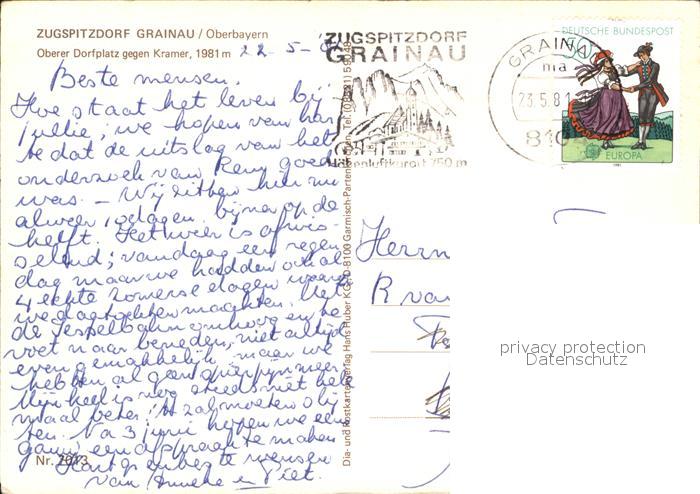 ZUGSPITZDORF GRAINAU / Oberbayern
Oberer Dorfplatz gegen Kramer, 1981 m
22-5-81
Beste mensen.
Hoe staat het leven bij
jullie; we hopen van har
te dat de uitslag van het
onderzoek van Remy goed
was. - Wij zitten hier nu
alweer 10 dagen, bijna op de
helft. Het weer is afwis-
selend; vandaag een regen
dag maar we hadden ook al
4 echte zomerse dagen waar
we dagtochten maakten. Met
de sesselbahn omhoog en te
voet naar beneden, niet altijd
even gemakkelijk, maar we
hebben al geen spierpijn meer.
Mijn keel is nog steeds niet hele
maal beter; 't zal moeten slij
ten. Na 3 juni hopen we een
gauw een afspraak te maken
Hartgroetjes te wensen
van Anneke en Piet.
Nr. 7013
Dia- und Postkartenverlag Hans Huber KG, D-8100 Garmisch-Partenkirchen
ZUGSPITZDORF
GRAINAU
Höhenluftkurort 750 m
GRAINAU
ma
23.5.81
8104
DEUTSCHE BUNDESPOST
50
EUROPA
1981
Herrn
R van
privacy protection
Datenschutz